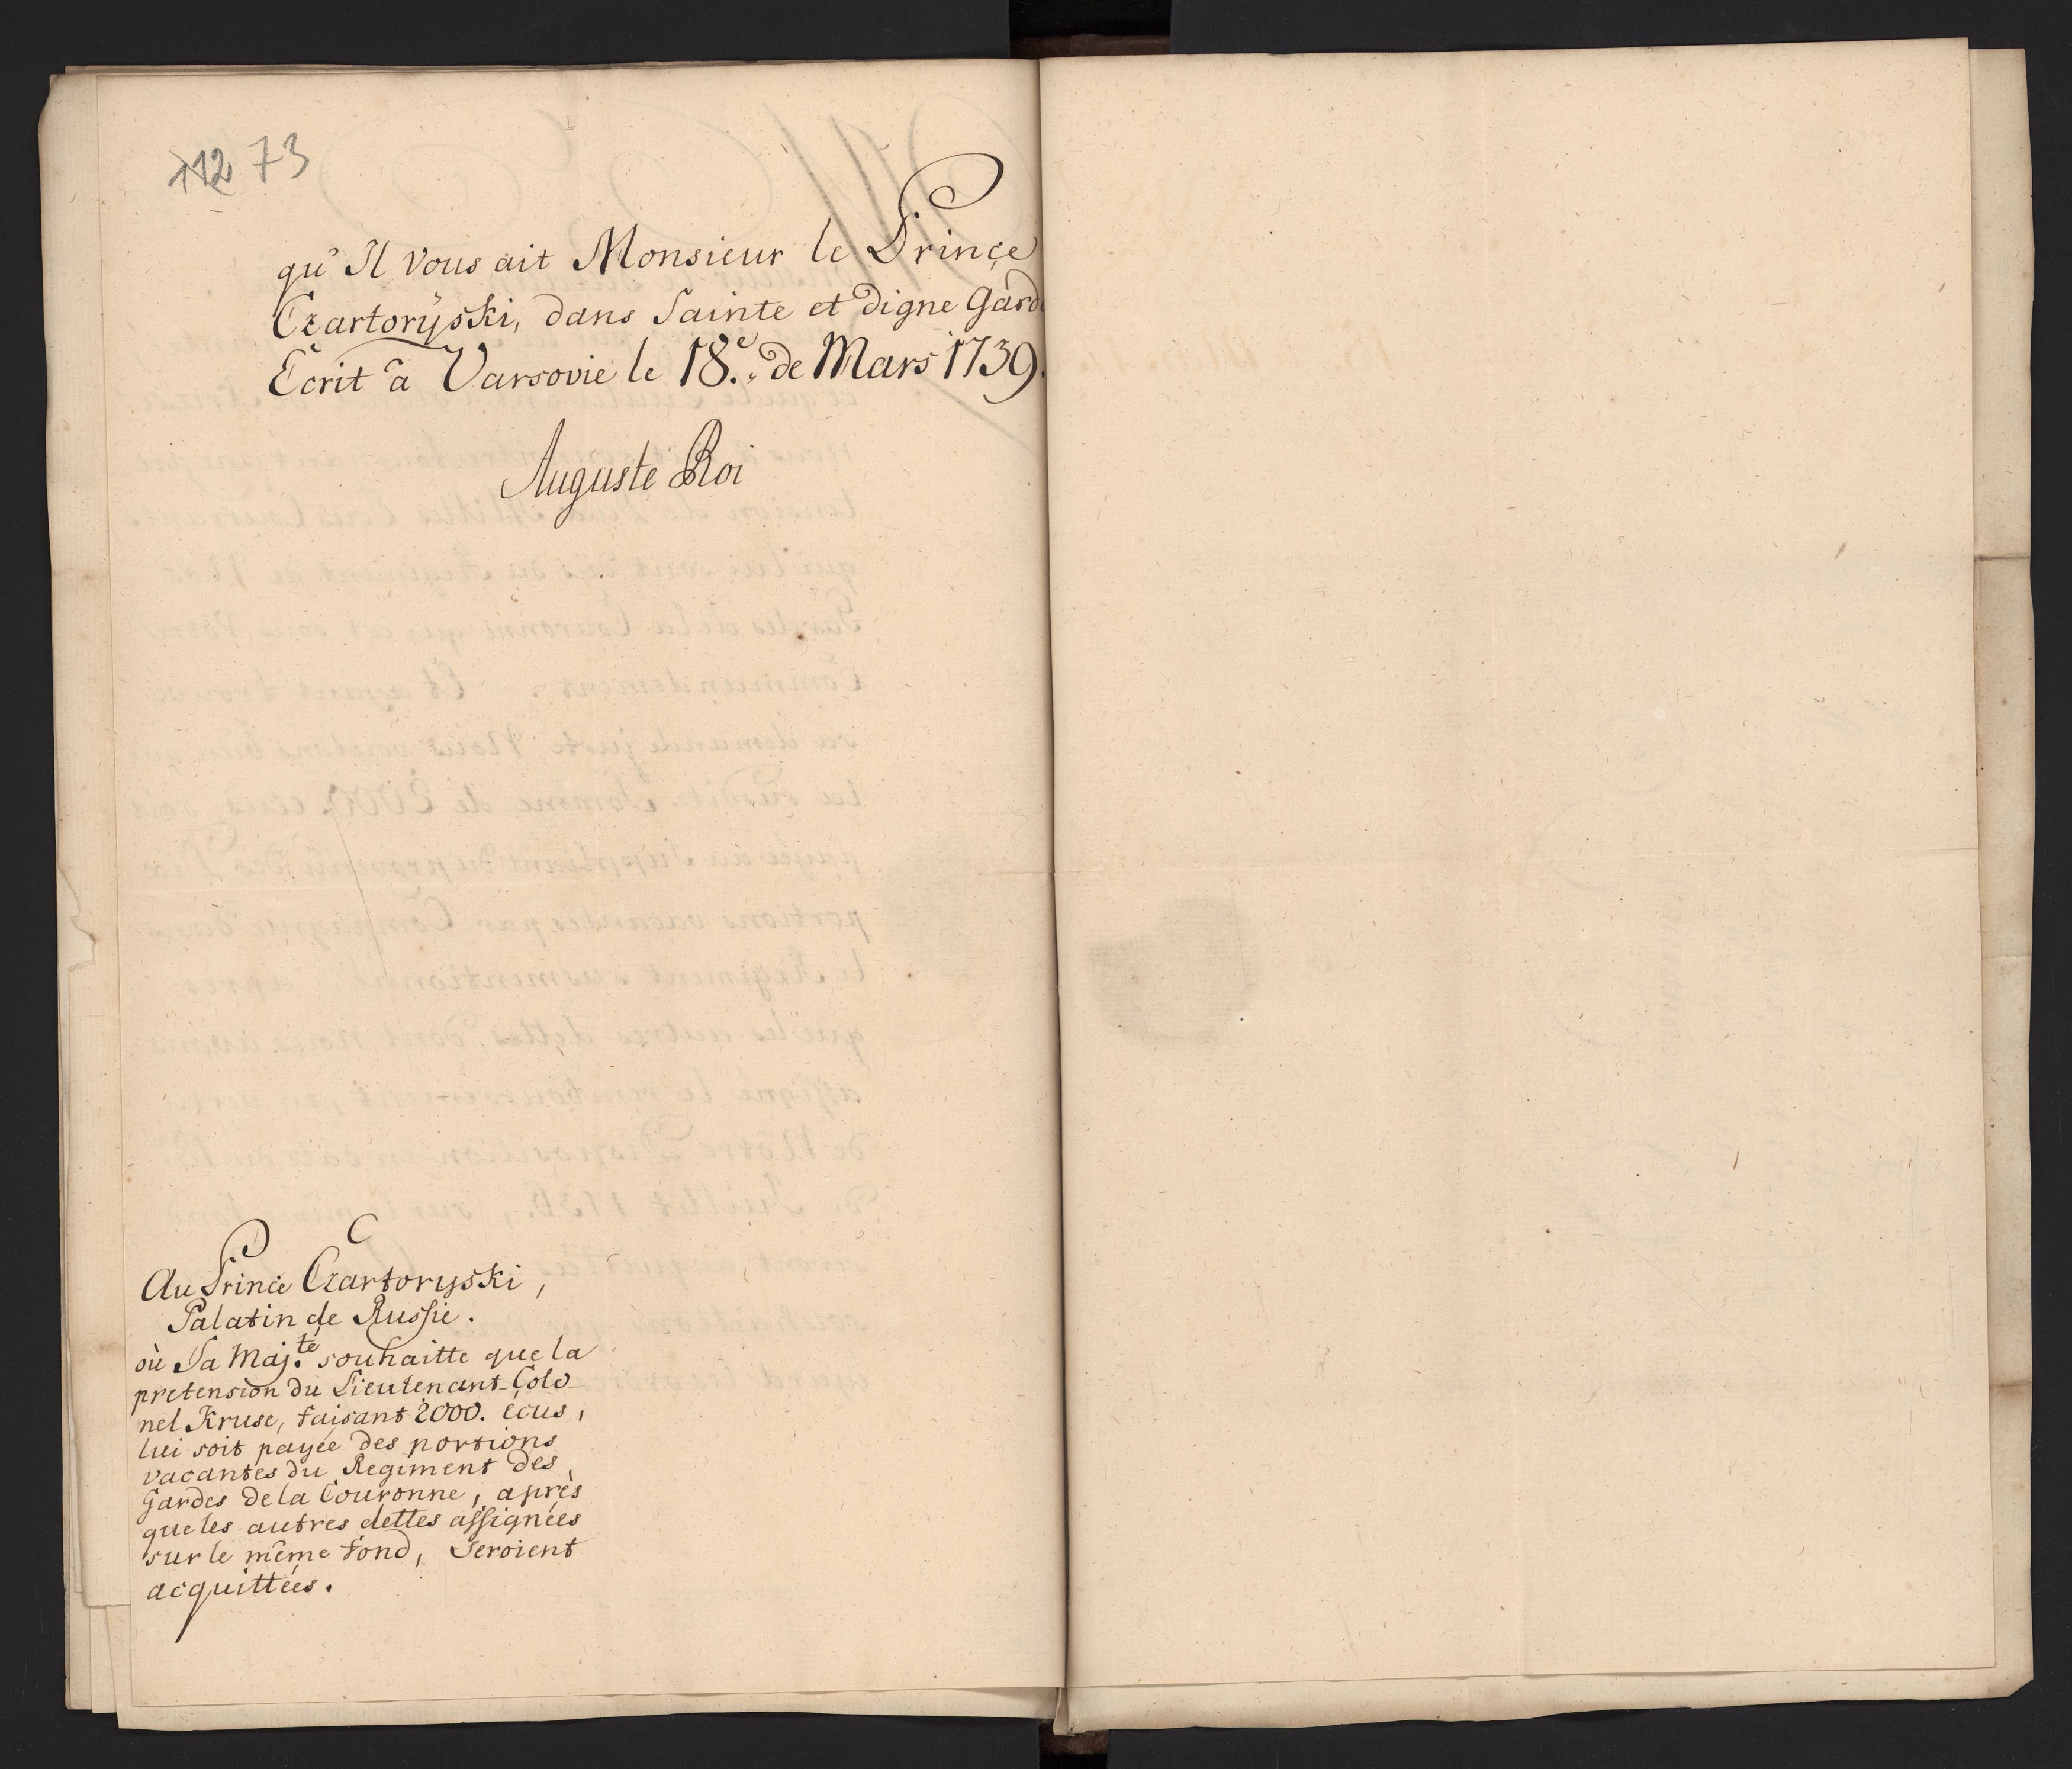 112 73
qu'Il vous ait Monsieur le Prince
Czartorÿski, dans Sainte et digne Garde
Ecrit â Varsovie le 18.e de Mars 1739.
Auguste Roi
Au Prince Czartoryski,
Palatin de Russie.
où Sa Maj.té souhaitte que la
pretension du Lieutenant-Colo
nel Kruse, faisant 2000. écus,
lui soit payée des portions
vacantes du Regiment des
Gardes de la Couronne, après
que les autres dettes assignées
sur le même fond, seroient
acquittées.